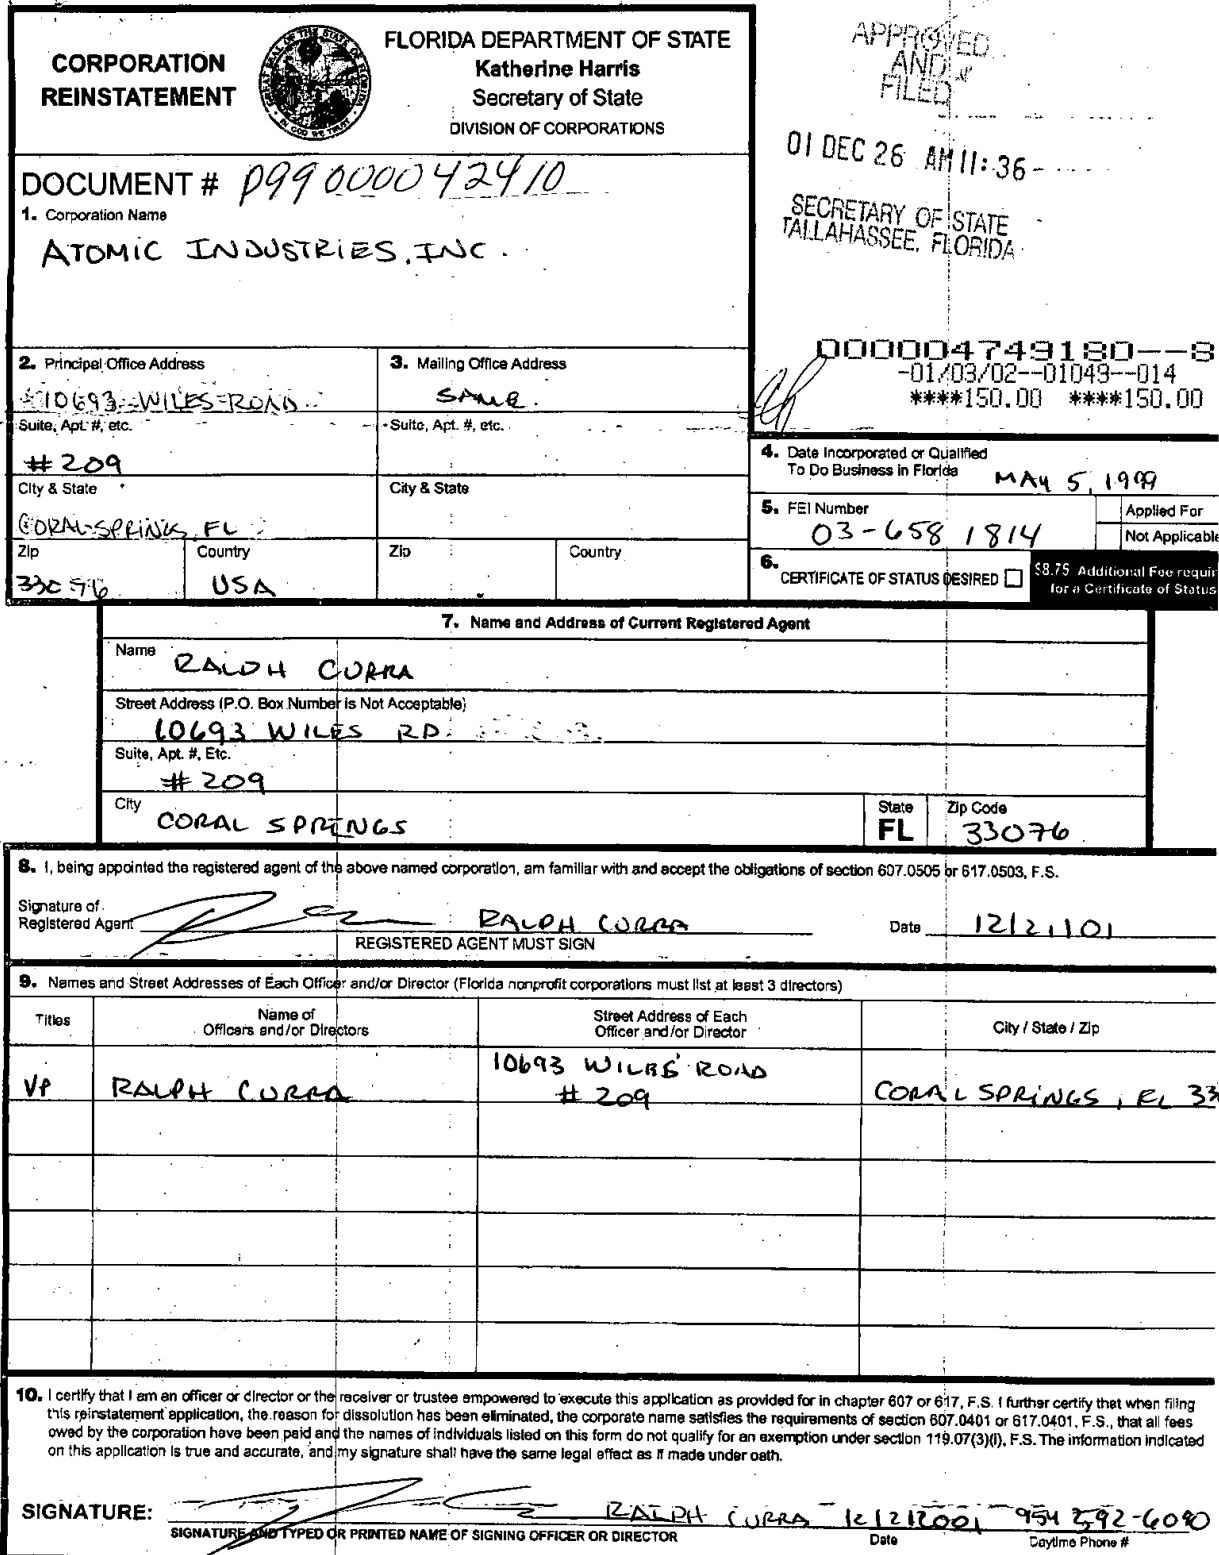 CORPORATION
REINSTATEMENT
FLORIDA DEPARTMENT OF STATE
Katherine Harris
Secretary of State
DIVISION OF CORPORATIONS
APPROVED
AND
FILED
01 DEC 26 AM 11:36
SECRETARY OF STATE
TALLAHASSEE, FLORIDA
DOCUMENT # P99000042410
1. Corporation Name
ATOMIC INDUSTRIES, INC.
000004749180--8
-01/03/02--01049--014
****150.00 ****150.00
2. Principal Office Address
10693 WILES ROAD
3. Mailing Office Address
SAME
Suite, Apt. #, etc.
#209
Suite, Apt. #, etc.
City & State
CORAL SPRINGS, FL
City & State
Zip
33076
Country
USA
Zip
Country
4. Date Incorporated or Qualified
To Do Business in Florida MAY 5, 1999
5. FEI Number
03-6581814
Applied For
Not Applicable
6. CERTIFICATE OF STATUS DESIRED
$8.75 Additional Fee requir
for a Certificate of Status
7. Name and Address of Current Registered Agent
Name
RALPH CURRA
Street Address (P.O. Box Number is Not Acceptable)
10693 WILES RD.
Suite, Apt. #, Etc.
#209
City
CORAL SPRINGS
State
FL
Zip Code
33076
8. I, being appointed the registered agent of the above named corporation, am familiar with and accept the obligations of section 607.0505 or 617.0503, F.S.
Signature of
Registered Agent RALPH CURRA Date 12/21/01
REGISTERED AGENT MUST SIGN
9. Names and Street Addresses of Each Officer and/or Director (Florida nonprofit corporations must list at least 3 directors)
Titles
Name of
Officers and/or Directors
Street Address of Each
Officer and/or Director
City / State / Zip
VP
RALPH CURRA
10693 WILES ROAD
#209
CORAL SPRINGS, FL 33
10. I certify that I am an officer or director or the receiver or trustee empowered to execute this application as provided for in chapter 607 or 617, F.S. I further certify that when filing
this reinstatement application, the reason for dissolution has been eliminated, the corporate name satisfies the requirements of section 607.0401 or 617.0401, F.S., that all fees
owed by the corporation have been paid and the names of individuals listed on this form do not qualify for an exemption under section 119.07(3)(i), F.S. The information indicated
on this application is true and accurate, and my signature shall have the same legal effect as if made under oath.
SIGNATURE: RALPH CURRA 12/21/2001 954 592-6080
SIGNATURE AND TYPED OR PRINTED NAME OF SIGNING OFFICER OR DIRECTOR
Date
Daytime Phone #